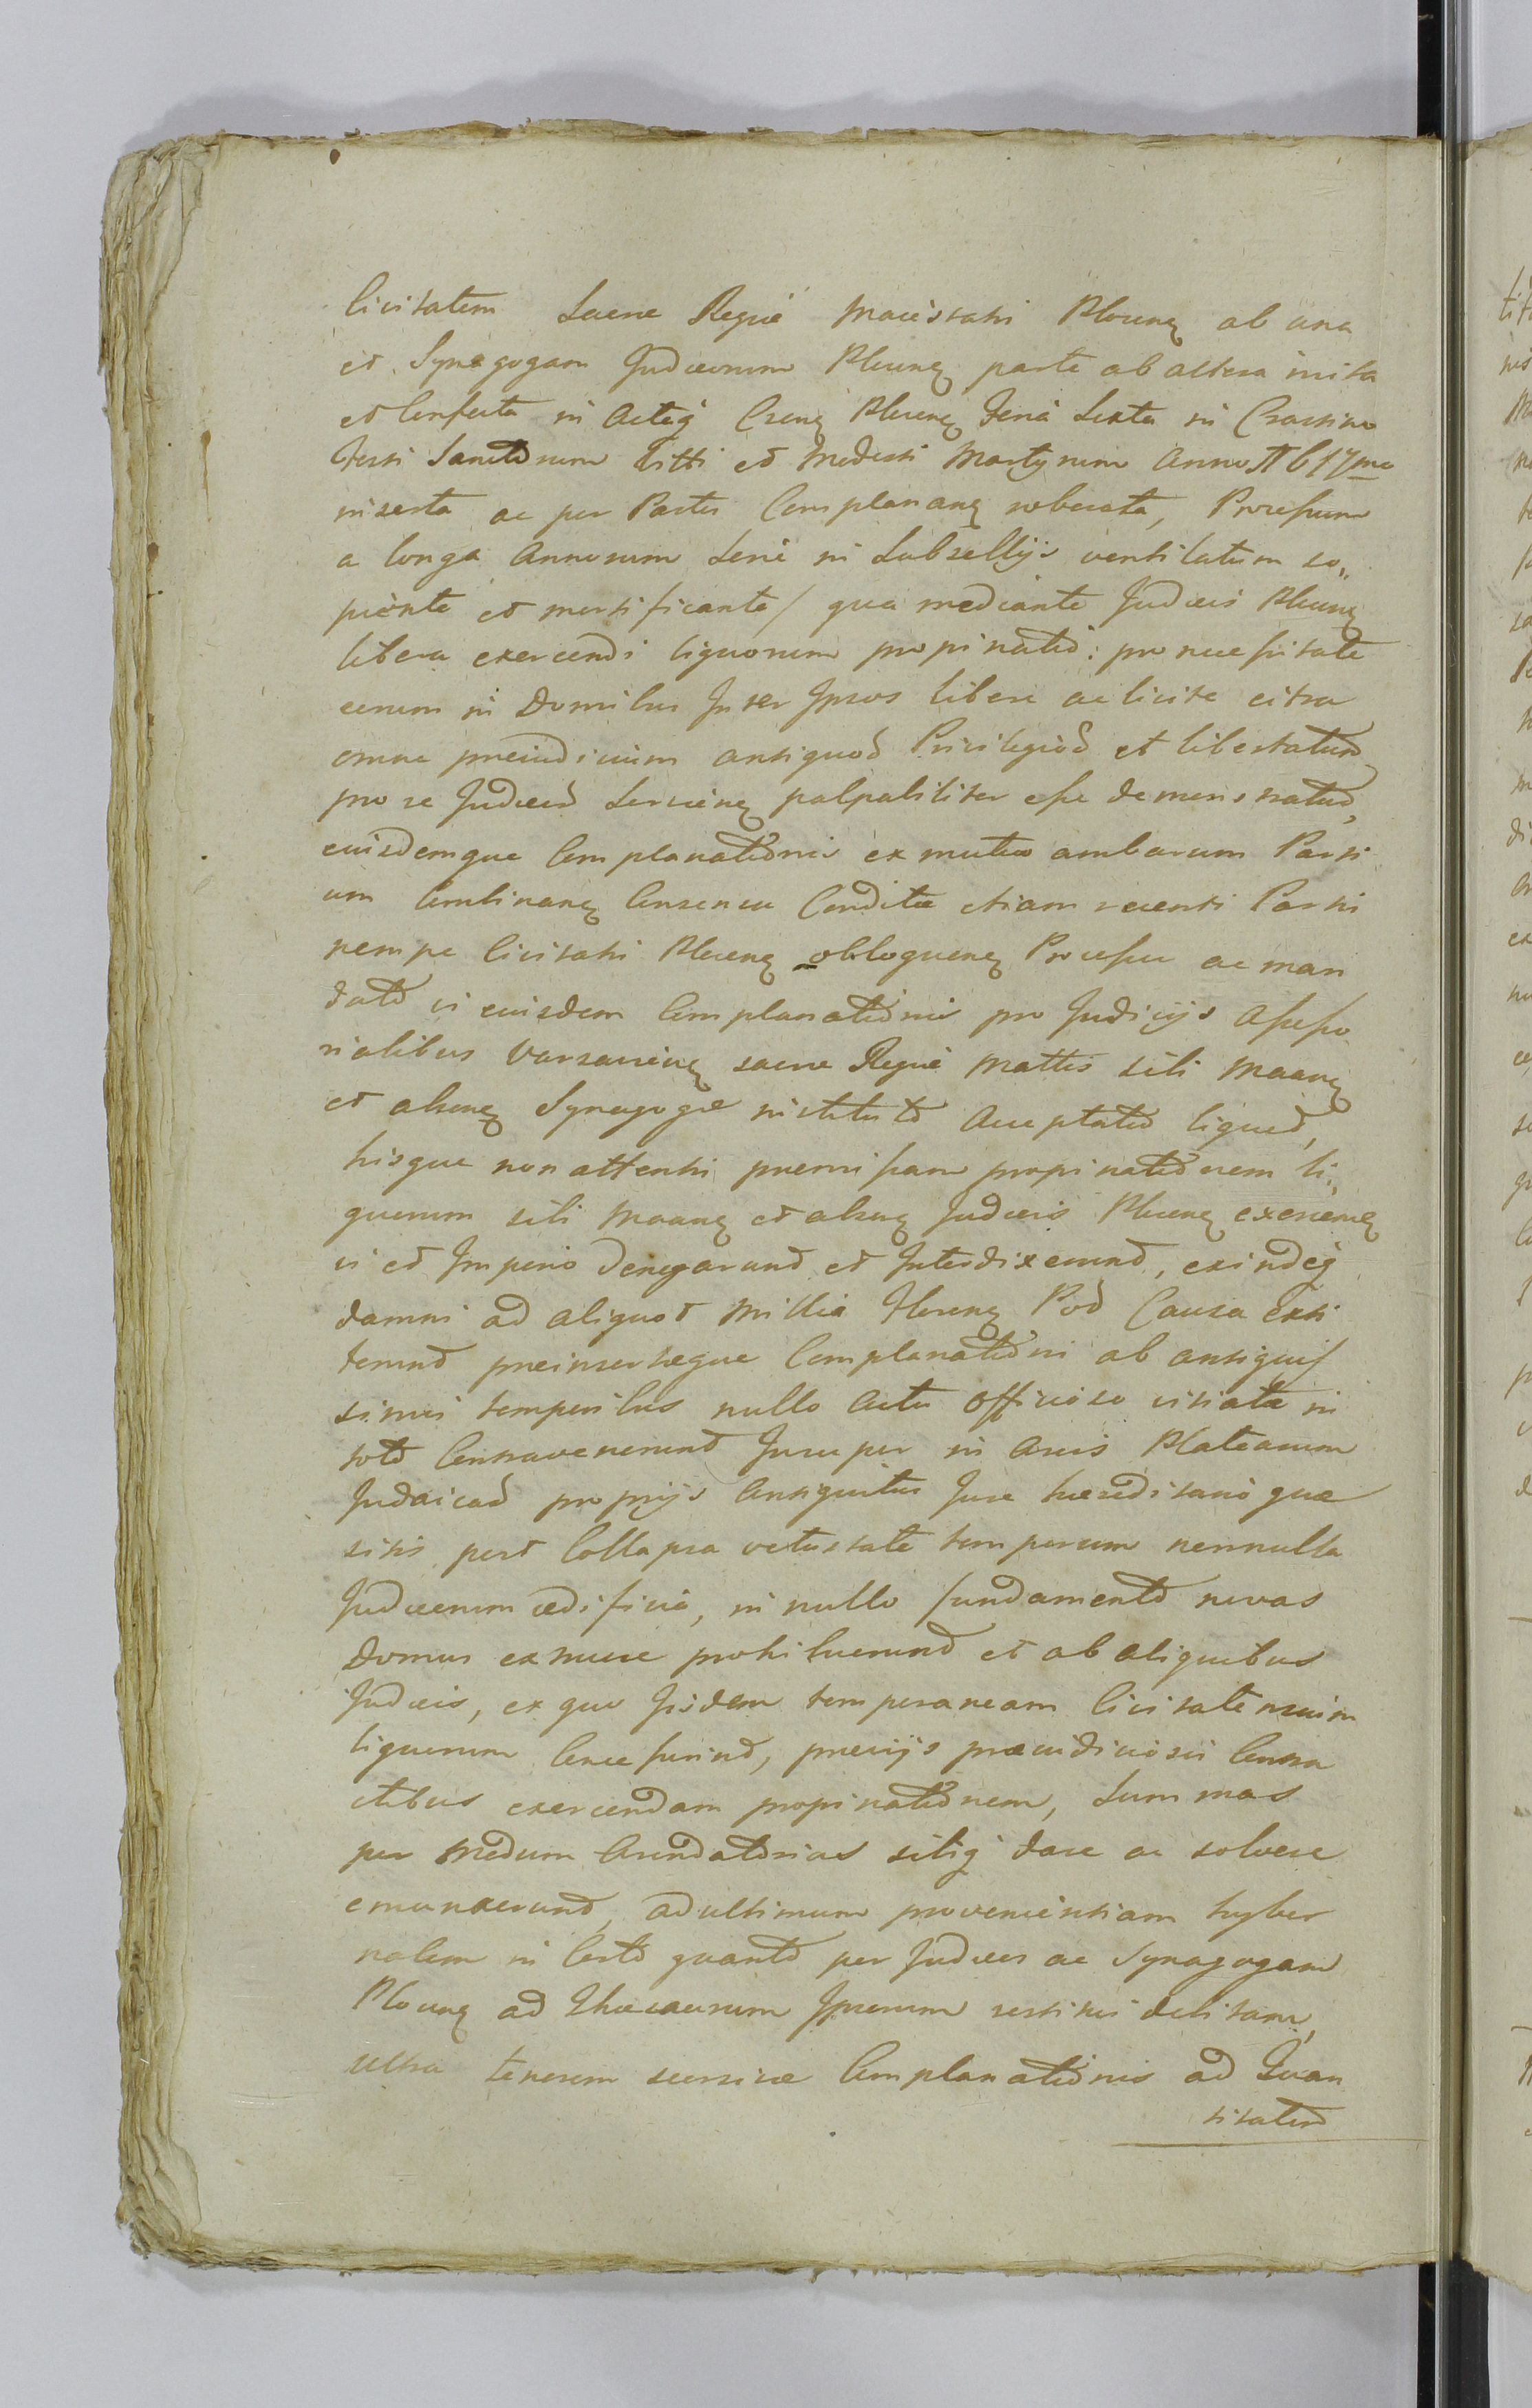 Civitatem Sacræ Regiæ Maiestatis Plocenȩ ab una
et Synagogam Judæorum Plocenȩ parte ab altera inita
et Confecta in Actisq̃ Crenȩ Plocenȩ Feria Sexta in Crastino
Festi Sanctorum Vitti et Modesti Martyrum Anno 1617mo
inserta ac per Partes Complananȩ roborata, Processum
a longa Annorum Serie in Subsellijs ventilatum so„
piente et mortificante/ qua mediante Judæis Plocenȩ
libera exercendi liquorum propinatio: pro necessitate
eorum in Domibus Inter Ipsos libere ac licite citra
omne preiudicium antiquor Privilegior et libertatum
pro se Judæis Servienȩ palpabiliter esse demonstratur,
eiusdemque Complanationis ex mutuo ambarum Parti
um Combinanȩ Consensu Conditæ etiam recenti Parti
nempe Civitati Plocenȩ obloquenȩ Processu ac man
dato vi eiusdem Complanationis pro Judicijs Assesso
rialibus Varsavienȩ sacræ Regiæ Mattis sibi Maanȩ
et absenȩ Synagogæ instituto Acceptato liquet,
hisque non attentis premissam propinationem li„
quorum sibi Maanȩ et absenȩ Judæis Plocenȩ exercenȩ
vi et Imperio denegarunt et Interdixerunt, exindeq̃
damni ad aliquot Millia Florenȩ Pol Causa exti
terunt preinsertæque Complanationi ab antiquis/
simis temporibus nullo Actu Officioso vitiatæ in
toto Contravenerunt Insuper in Areis Platearum
Judaicar proprijs Antiquitus Jure hæreditario quæ
sitis post Collapsa vetustate temporum nonnulla
Judæorum ædificia, in nullo fundamento novas
Domus exstruere prohibuerunt et ab aliquibus
Judæis, ex quo Iisdem temporaneam Civitatensium
liquorum Concesserint, previjs præiudiciosis Contra
ctibus exercendam propinationem, Summas
per Modum Arendatorias sibiq̃ dare ac solvere
emunxerunt, ad ultimum provenientiam hyber
nalem in Certo quanto per Judæos ac Synagogam
Plocenȩ ad Thesaurum Ipsorum restitui debitam,
ultra tenorem sæpius Complanationis ad Quan
titatem